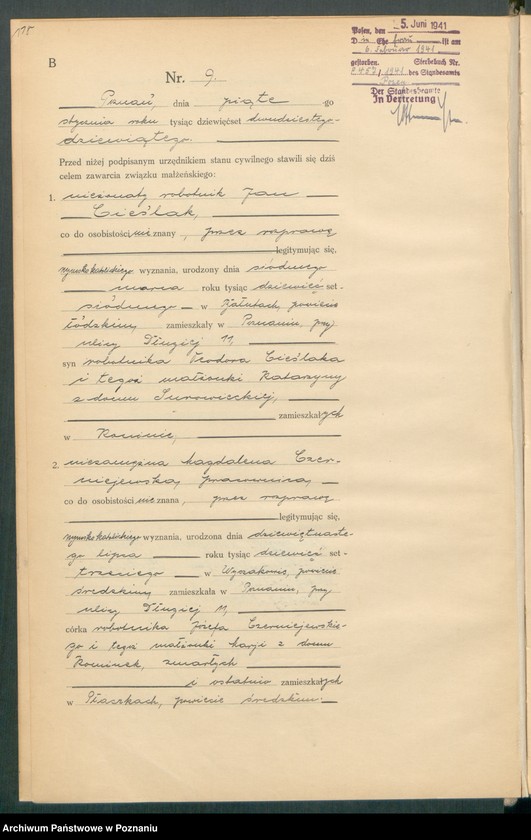 118
Posen, den 5. Juni 1941
Die Ehefrau ist am
6. Februar 1941
gestorben. Sterbebuch Nr.
457/1941 des Standesamts
Posen
Der Standesbeamte
In Vertretung
B
Nr. 9.
Poznań, dnia piąte-go
stycznia roku tysiąc dziewięćset dwudziestego-
dziewiątego.
Przed niżej podpisanym urzędnikiem stanu cywilnego stawili się dziś
celem zawarcia związku małżeńskiego:
1. nieżonaty robotnik Jan
Cieślak,
co do osobistości nieznany, przez rozprawę
legitymując się,
rzymskokatolickiego wyznania, urodzony dnia siódmego
marca roku tysiąc dziewięćset-
siódmego w Bałutach, powiecie
łódzkim zamieszkały w Poznaniu, przy
ulicy Długiej 11,
syn robotnika Teodora Cieślaka
i tegoż małżonki Katarzyny
z domu Surowieckiej,
zamieszkałych
w Koninie,
2. niezamężna Magdalena Czer-
niejewska, pracownica,
co do osobistości nieznana, przez rozprawę
legitymując się,
rzymskokatolickiego wyznania, urodzona dnia dziewiętnaste-
go lipca roku tysiąc dziewięćset-
trzeciego w Wyszakowie, powiecie
średzkim zamieszkała w Poznaniu, przy
ulicy Długiej 11,
córka robotnika Józefa Czerniejewskie-
go i tegoż małżonki Marji z domu
Kominek, zmarłych
i ostatnio zamieszkałych
w Płaczkach, powiecie średzkim.
Archiwum Państwowe w Poznaniu